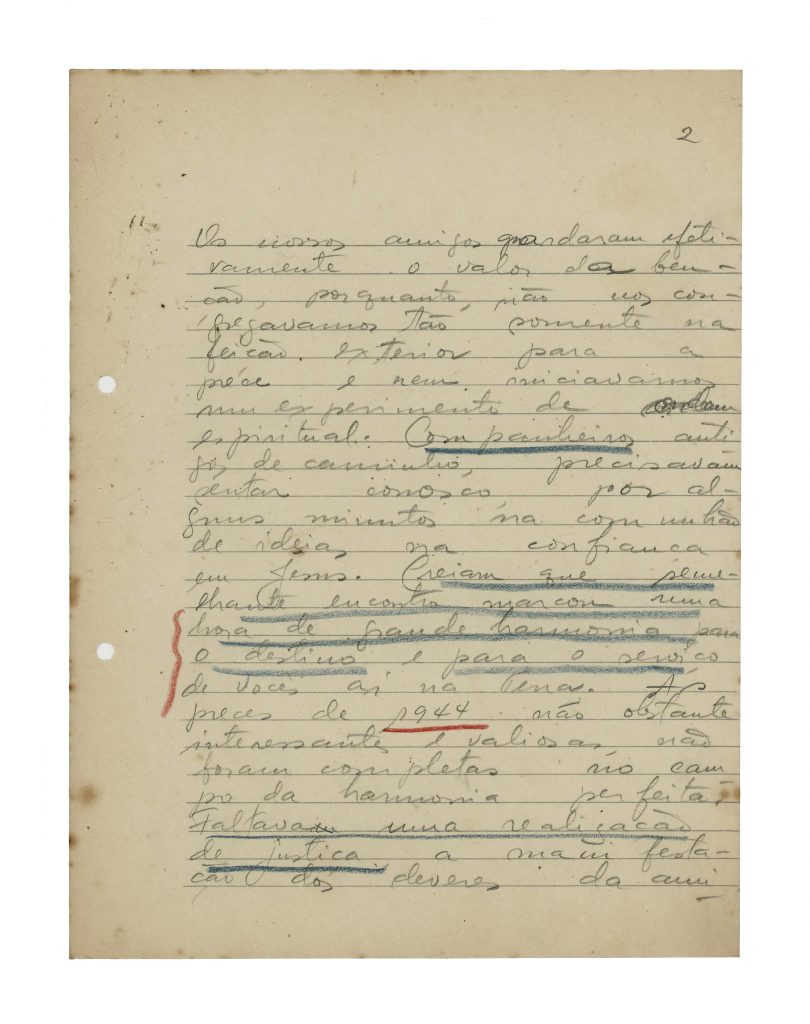 2
Os nossos amigos guardaram efeti-
vamente o valor da ben-
cão, porquanto, não nos con-
gregavamos tão somente na
feicão exterior para a
préce e nem iniciavamos
um experimento de
espiritual. Companheiros anti
gos de caminho, precisavam
sentar conosco por al-
guns minutos na comunhão
de ideias, na confianca
em Jesus. Creiam que seme-
lhante encontro marcou uma
hora de grande harmonia para
o destino e para o serviço
de voces aí na Terra. As
preces de 1944 não obstante
interessantes e valiosas não
foram completas no cam
po da harmonia perfeita.
Faltava uma realizacão
de justica a manifesta-
cão dos deveres da ami
-